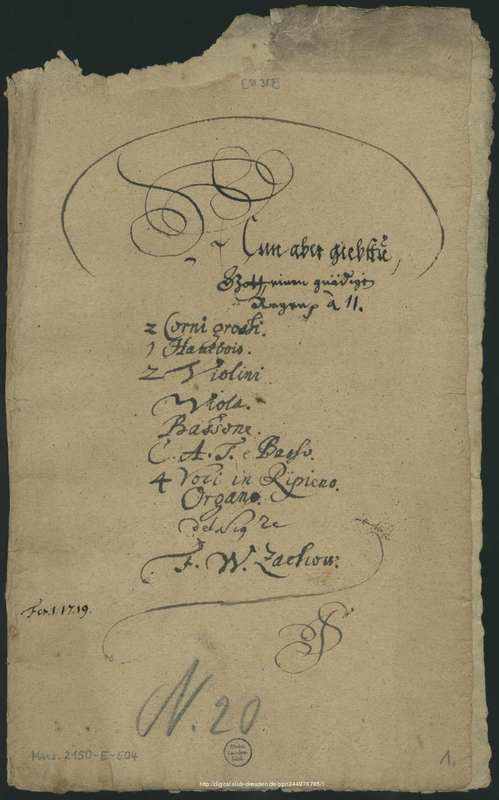 Nun aber giebstu,
Gott einen gnädigen
Regen, à 11.
2 Corni grossi.
1 Hautbois.
2 Violini
Viola.
Bassone.
C. A. T. e Basso.
4 Voci in Ripieno.
Organo.
del Sig re
F. W. Zachow.
Fer. 1. 1719.
N. 20
Mus. 2150-E-504
1.
Sächs.
Landes-
Bibl.
http://digital.slub-dresden.de/ppn344976785/1